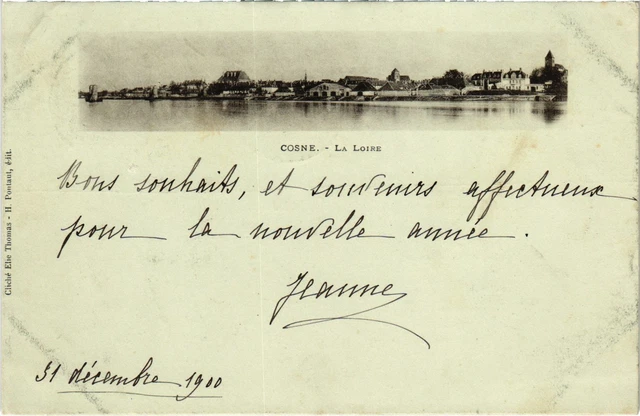 COSNE. - LA LOIRE
Bons souhaits, et souvenirs affectueux
pour la nouvelle année.
Jeanne
31 décembre 1900
Cliché Elie Thomas - H. Pontaut, édit.